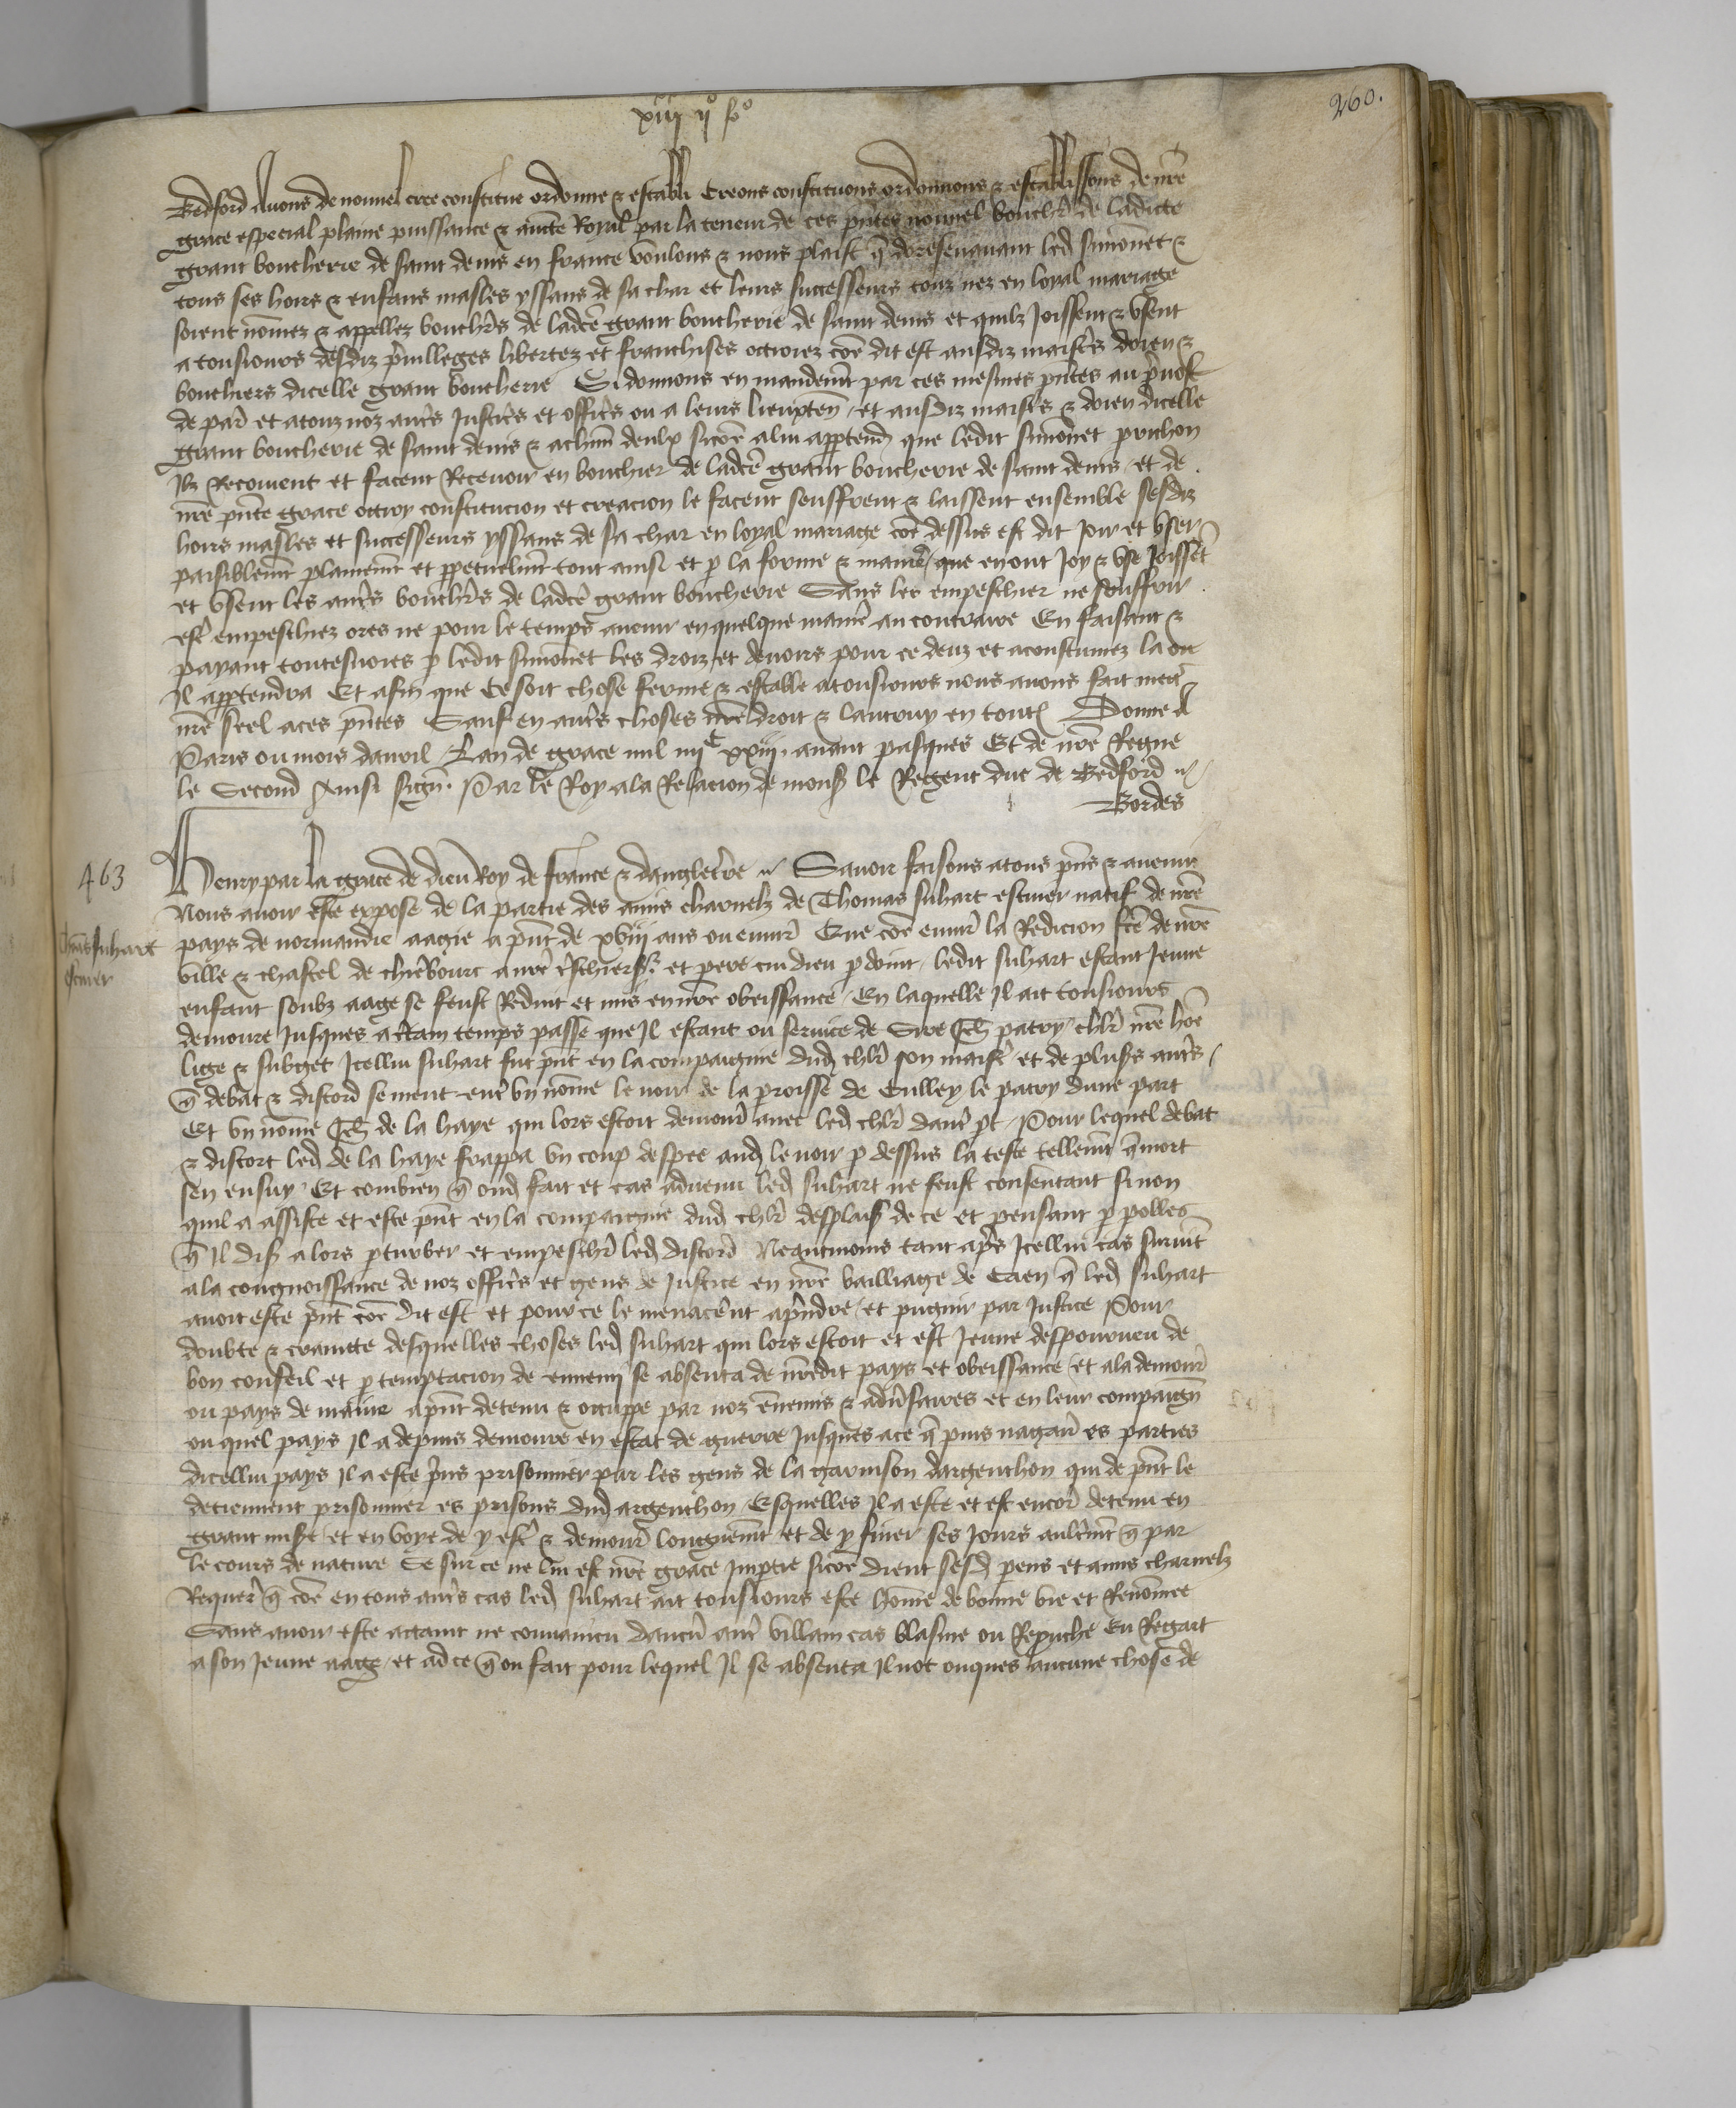 260.
Bedford Avons de nouvel cree constitue ordonne & establi Creons constituons ordonnons & establissons de nr̄e
grace especial plaine puissance & aucte Royal par la teneur de ces p̄ntes nouvel bouchr̄ de ladicte
grant boucherie de saint denis en france voulons & nous plaist q̄ doresenavant led simonnet &
tous ses hoirs & enfans masles yssans de sa char et leurs successeurs touz nez en loyal mariage
soient nōmez & appellez bouchr̄s de ladcē grant boucherie de saint denis et quilz Joissent & usent
a tousiours desdiz p̄villeges libertez et franchises octroiez cōe dit est ausdiz maistr̄s doien &
bouchiers dicelle grant boucherie Si donnons en mandemt̄ par ces mesmes p̄ntes au p̄vost
de par̄ et a touz noz autr̄s Justicr̄s et officr̄s ou a leurs lieuxten̄ et ausdiz maistr̄s & doien dicelle
grant boucherie de saint denis & a chūn deulx sicōe a lui appartend que ledit simonnet pruchon
Ilz Recoivent et facent Recevoir en bouchier de ladcē grant boucherie de saint denis et de
nr̄e p̄nte grace octroy constitucion et creacion le facent seuffrent & laissent ensemble sesdiz
hoirs masles et successeurs yssans de sa char en loyal mariage cōe dessus est dit Joir et user
paisiblemt̄ plainemt̄ et ppetuelmt̄ tout ainsi et p la forme & manier̄ que en ont Joy & use Joissēt
et usent les autr̄s bouchr̄s de ladcē grant boucherie Sans les empeschier ne souffrir
estr̄ empeschiez ores ne pour le temps avenir en quelque manier̄ au contraire En faisant &
payant toutesvoies p ledit simonnet les droiz et devoirs pour ce deuz et acoustumez la ou
Il appartendra Et afin que ce soit chose ferme & estable a tousiours nous avons fait mectr̄
nr̄e seel a ces p̄ntes Sauf en autr̄s choses nr̄e droit & lautruy en toutes Donne a
Paris ou mois davril Lan de grace mil iiijᶜ xxiij. avant pasques Et de nr̄e Regne
le Second Ainsi sign̄. Par le Roy a la Relacion de mons̄ le Regent duc de Bedford
Bordes
463
Henry par la grace de dieu Roy de france & dangleterr̄e Savoir faisons a tous p̄ns & avenir
Nous avoir este expose de la partie des amis charnelz de Thomas Suhart escuier natif de nr̄e
Suhart
escuier
pays de normandie aagie a p̄nt de xviij ans ou envir̄ Que cōe envir̄ la Redicion fcē de nr̄e
ville & chastel de chierbourc a nr̄e tr̄schier sr̄ et pere cui dieu pdoint ledit Suhart estant Jeune
enfant soubz aage se feust Reduit et mis en nr̄e obeissance En laquelle Il ait tousiours
demoure Jusques a ctain temps passe que Il estant ou service de Sire patry chlr̄ nr̄e hōe
lige & subget Icellui Suhart fut p̄nt en la compaignie dud chlr̄ son maistr̄ et de plusrs̄ autr̄s
q̄ debat & discord se meut entr̄ un nōme le noir de la parroisse de Culley le patry dune part
Et un nōme de la haye qui lors estoit demour̄ avec led chlr̄ dautr̄ pt Pour lequel debat
& discort led de la haye frappa un coup despee aud le noir p dessus la teste tellemt̄ q̄ mort
sen ensuy Et combien q̄ oud fait et cas advenu led Suhart ne feust consentant si non
quil a assiste et este p̄nt en la compaignie dud chlr̄ desplais̄ de ce et pensant p polles
q̄ Il dis̄ a lors pturber et empeschr̄ led discord Neantmoins tant apr̄s Icellui cas survīt
a la congnoissance de noz officr̄s et gens de Justice en nr̄e bailliage de Caen q̄ led Suhart
avoit este p̄nt cōe dit est et pour ce le menacer̄nt a p̄ndre et pugnir par Justice Pour
doubte & crainte desquelles choses led Suhart qui lors estoit et est Jeune despourveu de
bon conseil et p temptacion de ennemi se absenta de nr̄edit pays et obeissance et ala demour̄
ou pays de maine a p̄nt detenu & occuppe par noz ēnemis & adv̄saires et en leur compaign̄
ou quel pays Il a depuis demoure en estat de guerre Jusques a ce q̄ puis nagair̄ es parties
dicellui pays Il a este p̄ns prisonnier par les gens de la garnison dargenthon qui de p̄nt le
detiennent prisonnier es prisons dud argenthon Esquelles Il a este et est encor̄ detenu en
grant misr̄e et en voye de y estr̄ & demour̄ longuemt̄ et de y finer ses Jours aultrmt̄ q̄ par
le cours de nature Se sur ce ne lui est nr̄e grace Imptie sicōe dient sesd parens et amis charnelz
Requer̄ q̄ cōe en tous autr̄s cas led Suhart ait tousiours este hōme de bonne vie et Renōmee
Sans avoir este actaint ne convaincu daucū autr̄ villain cas blasme ou Reprouche Eu Regart
a son Jeune aage et ad ce q̄ ou fait pour lequel Il se absenta Il not onques aucune chose de